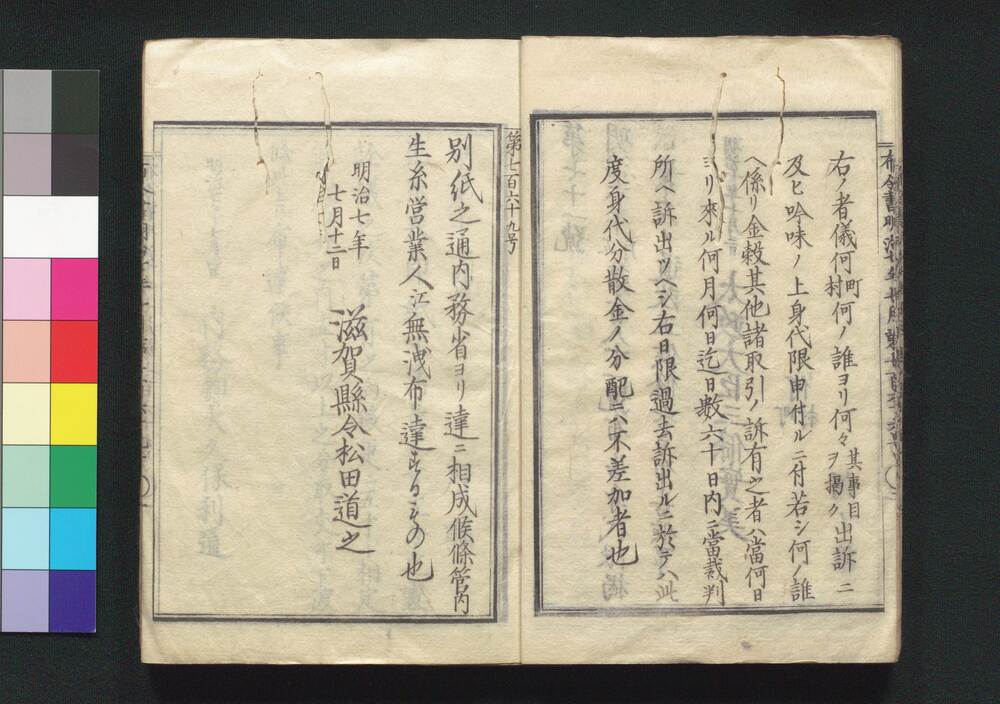 右ノ者儀何町村何ノ誰ヨリ何々其事目ヲ掲ク出訴ニ
及ヒ吟味ノ上身代限申付ルニ付若シ何ノ誰
ヘ係リ金穀其他諸取引ノ訴有之者ハ當何日
ヨリ來ル何月何日迄日數六十日内ニ當裁判
所ヘ訴出ツヘシ右日限過去訴出ルニ於テハ此
度身代分散金ノ分配ニハ不差加者也
第七百六十九号
別紙之通内務省ヨリ達ニ相成候條管内
生糸営業人江無洩布達するもの也
明治七年
七月十二日
滋賀縣令松田道之